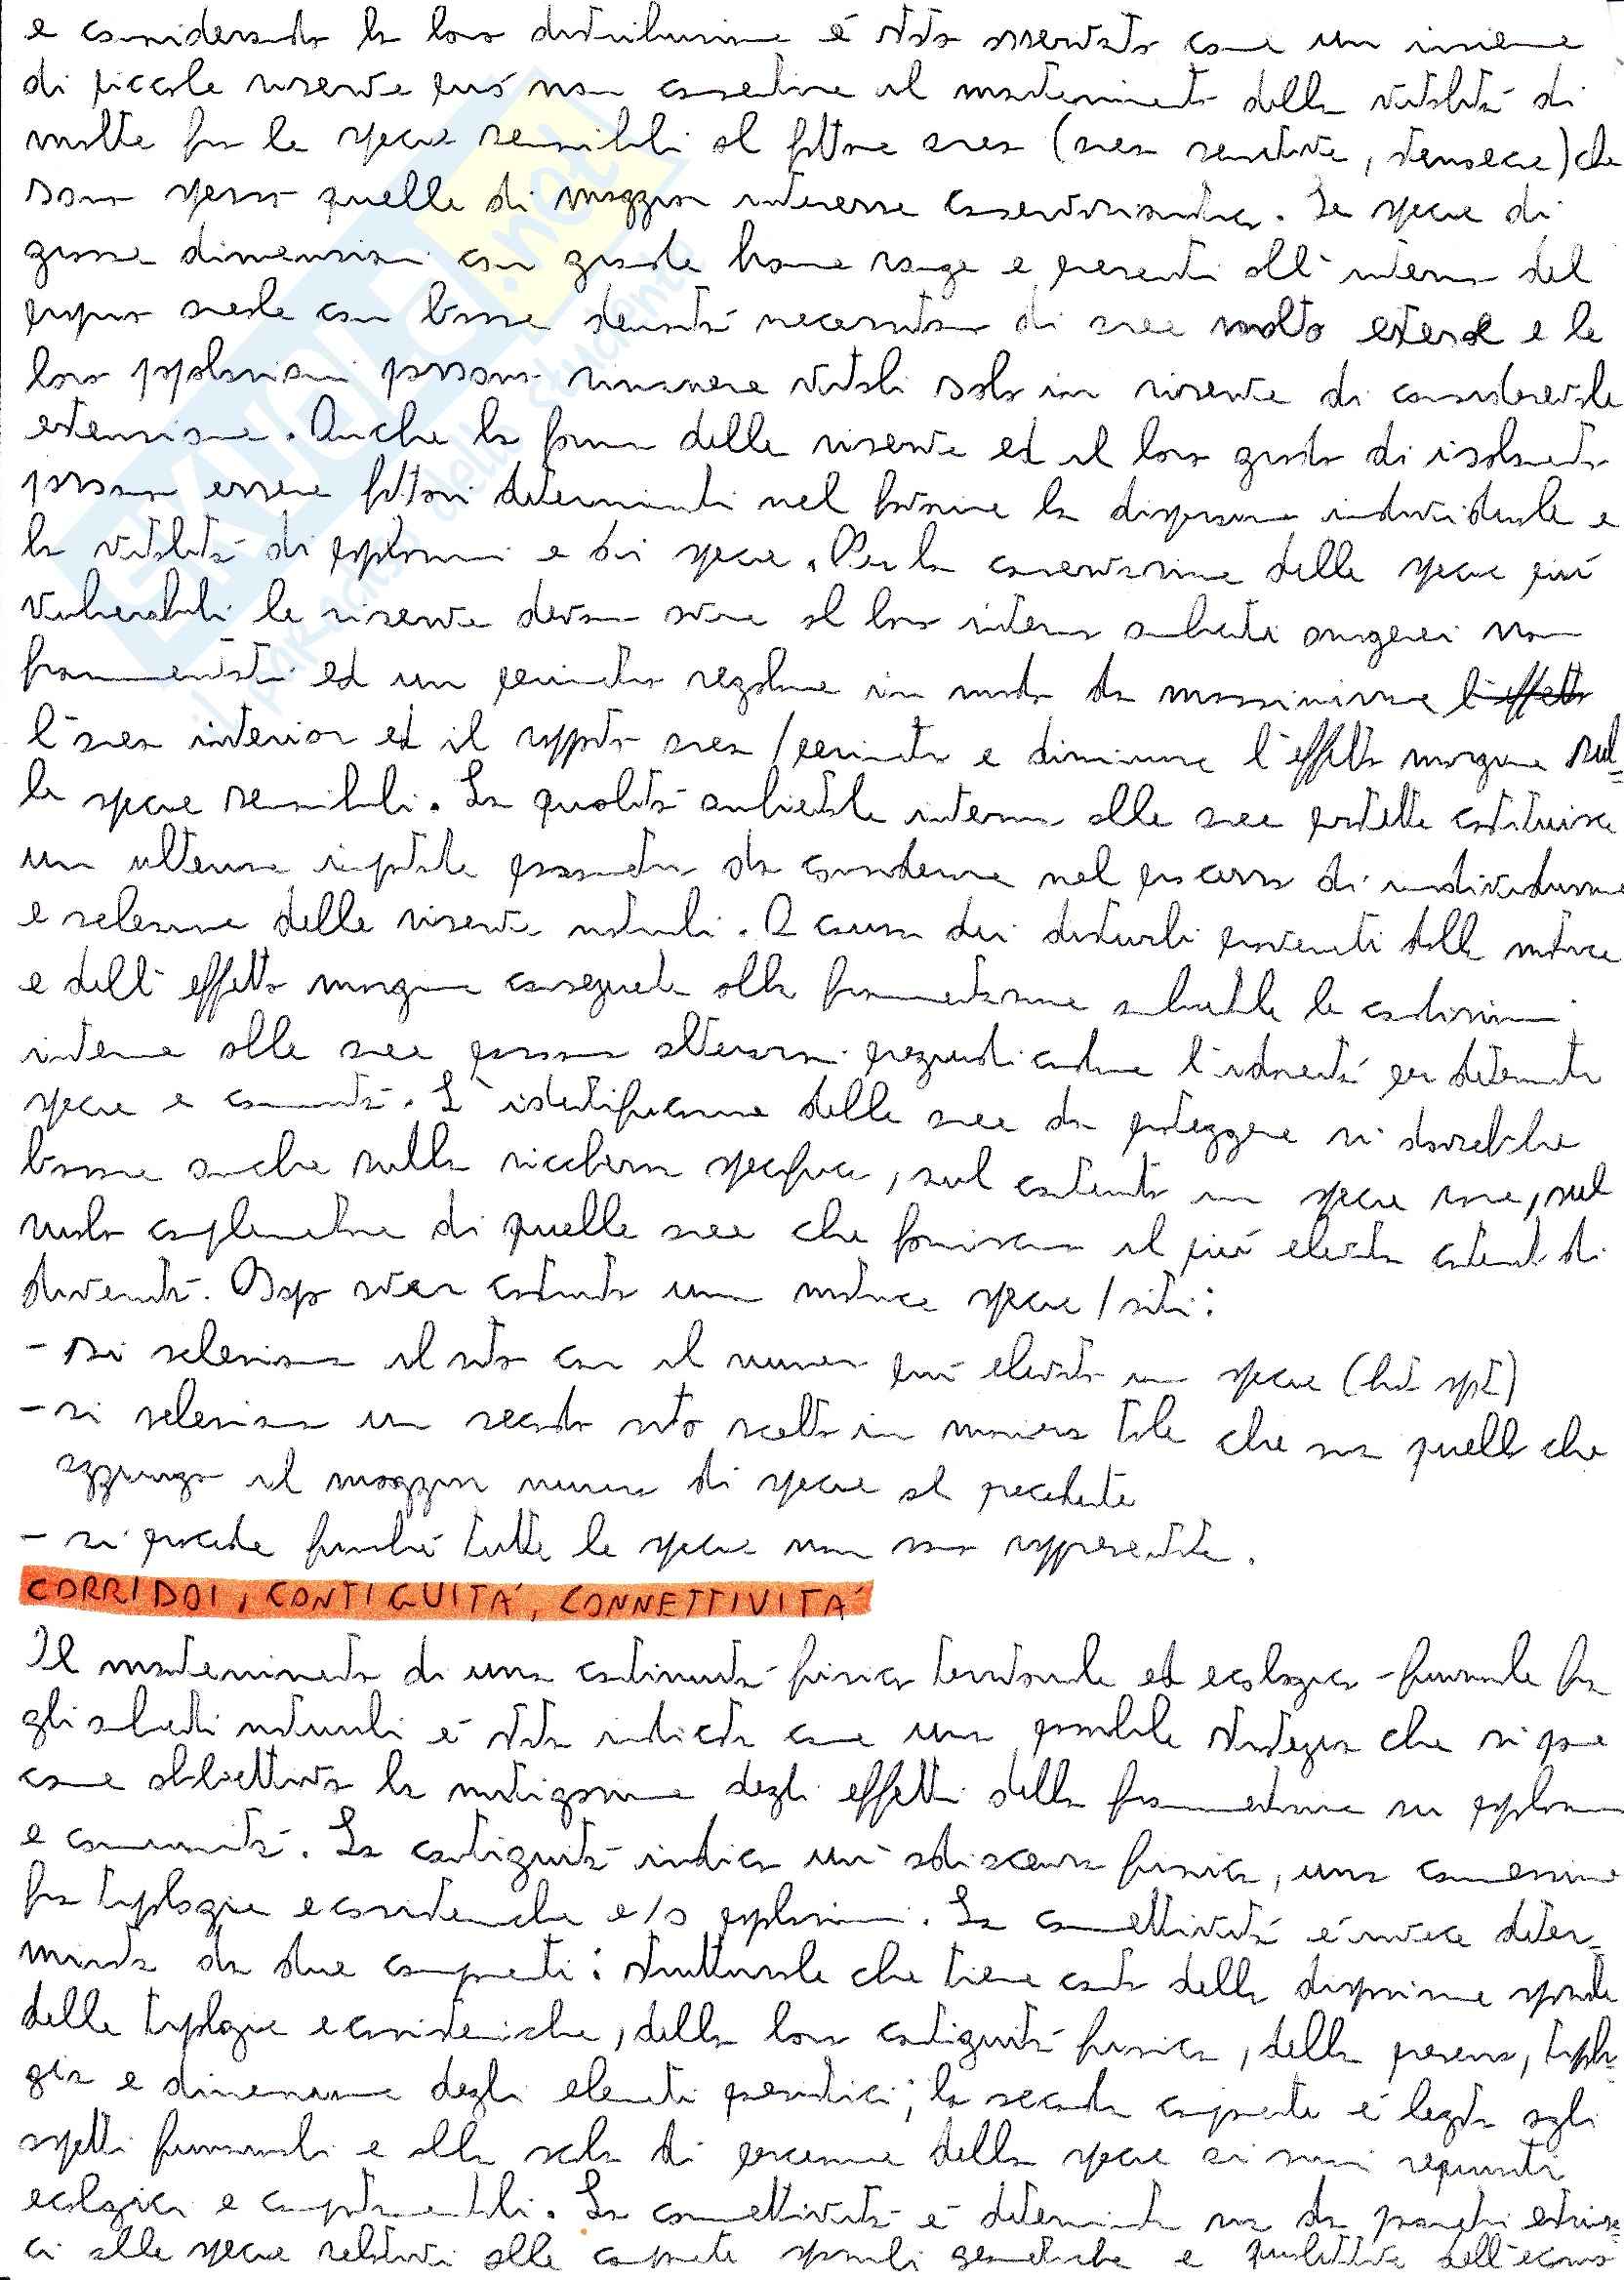 e considerando la loro distribuzione é stato osservato come un insieme
di piccole riserve può non consentire il mantenimento della vitalità di
molte fra le specie sensibili al fattore area (area sensitive, stenoecie) che
sono spesso quelle di maggior interesse conservazionistico. Le specie di
grosse dimensioni con grande home range e presenti all'interno del
proprio areale con basse densità necessitano di aree molto estese e le
loro popolazioni possono rimanere vitali solo in riserve di considerevole
estensione. Anche la forma delle riserve ed il loro grado di isolamento
possono essere fattori determinanti nel favorire la dispersione individuale e
la vitalità di popolazioni e di specie. Per la conservazione delle specie più
vulnerabili le riserve devono avere al loro interno ambienti omogenei non
frammentati ed un perimetro regolare in modo da massimizzare l'effetto
l'area interior ed il rapporto area/perimetro e diminuire l'effetto margine sul=
le specie sensibili. La qualità ambientale interna alle aree protette costituisce
un ulteriore importante parametro da considerare nel processo di individuazione
e selezione delle riserve naturali. A causa dei disturbi provenienti dalla matrice
e dell'effetto margine conseguente alla frammentazione ambientale le condizioni
interne alle aree possono alterarsi pregiudicandone l'idoneità per determinate
specie e comunità. L'identificazione delle aree da proteggere si dovrebbe
basare anche sulla ricchezza specifica, sul contenuto in specie rare, sul
ruolo complementare di quelle aree che forniscono il più elevato contenuto di
diversità. Dopo aver costruito una matrice specie/siti:
- si seleziona il sito con il numero più elevato in specie (hot spot)
- si seleziona un secondo sito scelto in maniera tale che sia quello che
aggiunga il maggior numero di specie al precedente
- si procede finché tutte le specie non sono rappresentate.
CORRIDOI, CONTIGUITÁ, CONNETTIVITÁ
Il mantenimento di una continuità fisica territoriale ed ecologica-funzionale fra
gli ambienti naturali é stata indicata come una possibile strategia che si pone
come obbiettivo la mitigazione degli effetti della frammentazione su popolazioni
e comunità. La contiguità indica un'adiacenza fisica, una connessione
fra tipologie ecosistemiche e/o popolazioni. La connettività é invece deter=
minata da due componenti: strutturale che tiene conto della disposizione spaziale
delle tipologie ecosistemiche, della loro contiguità fisica, della presenza, tipolo=
gia e dimensione degli elementi paesistici; la seconda componente é legata agli
aspetti funzionali e alla scala di percezione della specie ai suoi requisiti
ecologici e comportamentali. La connettività é determinata sia da parametri estrinse=
ci alle specie relativi alle componenti spaziali geometriche e qualitative dell'ecomo